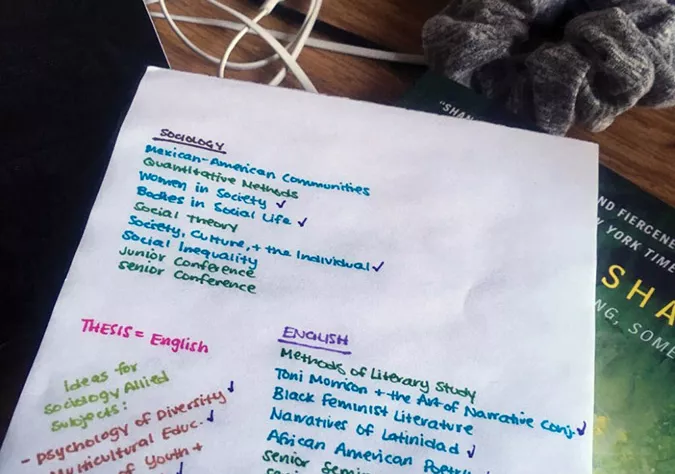 SOCIOLOGY
Mexican-American Communities
Quantitative Methods
Women in Society ✓
Bodies in Social Life ✓
Social Theory
Society, Culture, + the Individual ✓
Social Inequality
Junior Conference
Senior Conference
THESIS = English
Ideas for
Sociology Allied
Subjects:
- Psychology of Diversity
Multicultural Educ.
of Youth +
ENGLISH
Methods of Literary Study
Toni Morrison + the Art of Narrative Conj. ✓
Black Feminist Literature
Narratives of Latinidad ✓
African American
senior
"SHAN
ND FIERCENE
YORK TIME
SHA
NG, SOME